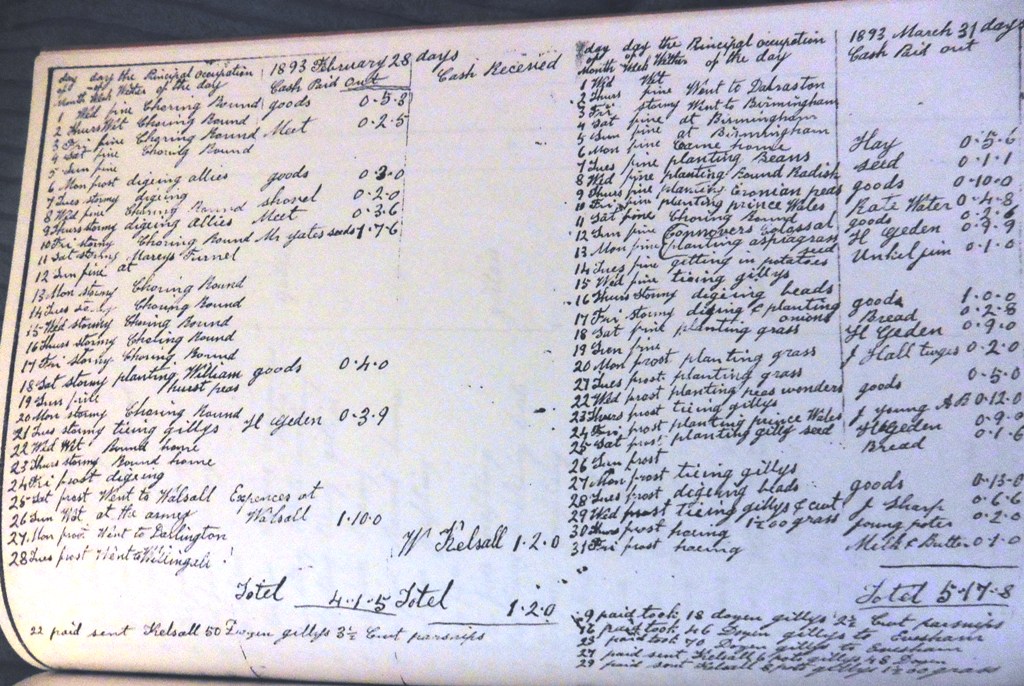 day day the Principal occupation
of of
Month Week Wether of the day
1893 February 28 days
Cash Paid out
Cash Recesied
1 Wed fine Choring Round goods 0-5-8
2 Thurs Wet Choring Round
3 Fri fine Choring Round Meet 0-2-5
4 Sat fine Choring Round
5 Sun fine
6 Mon frost digeing allies goods 0-3-0
7 Tues stormy digeing shovel 0-2-0
8 Wed fine Choring Round Meet 0-3-6
9 Thurs stormy digeing Allies
10 Fri stormy Choring Round Mr yates seeds 1-7-6
11 Sat stormy Mareys Firnel
12 Sun fine at
13 Mon stormy Choring Round
14 Tues Choring Round
15 Wed stormy Choring Round
16 Thurs stormy Choring Round
17 Fri stormy Choring Round
18 Sat stormy planting William goods 0-4-0
hurst peas
19 Sun
20 Mon stormy Choring Round
21 Tues stormy tieing gillys H Geden 0-3-9
22 Wed Wet Round home
23 Thurs stormy Round home
24 Fri frost digeing
25 Sat frost Went to Walsall Expences at
26 Sun Wet at the armey Walsall 1-10-0
27 Mon Went to Dallington W Kelsall 1-2-0
28 Tues frost Went to Willingale
Totel 4-1-5 Totel 1-2-0
22 paid sent Kelsall 50 Dozen gillys 3½ Cwt parsnips
day day the Principal occupation
of of
Month Week Wether of the day
1893 March 31 days
Cash Paid out
1 Wed Wet
2 Thurs fine Went to Dalraston
3 Fri stormy Went to Birmingham
4 Sat fine at Birmingham
5 Sun fine at Birmingham
6 Mon fine Came home Hay 0-5-6
7 Tues fine planting Beans seed 0-1-1
8 Wed fine planting Round Radish goods 0-10-0
9 Thurs fine planting Cronian peas Rate Water 0-4-8
10 Fri fine planting prince Wales goods 0-2-6
11 Sat fine Choring Round H Geden 0-9-9
12 Sun fine Connovers Colossal Unkel jim 0-1-0
13 Mon fine planting aspragrass
seed
14 Tues fine getting in potatoes
15 Wed fine tieing gillys
16 Thurs Stormy digeing beads goods 1-0-0
17 Fri stormy diging & planting Bread 0-2-8
onions
18 Sat fine planting grass H Geden 0-9-0
19 Sun fine J Hall twiges 0-2-0
20 Mon frost planting grass
21 Tues frost planting grass goods 0-5-0
22 Wed frost planting peas wonders J young AB 0-12-0
23 Thurs frost tieing gillys H Geden 0-9-0
24 Fri frost planting prince Wales Bread 0-1-6
25 Sat frost planting gilly seed
26 Sun frost
27 Mon frost tieing gillys
28 Tues frost digeing beads goods 0-13-0
29 Wed frost tieing gillys & cut J Sharp 0-6-6
1½ 00 grass
30 Thurs frost hoeing young poter 0-2-0
31 Fri frost hoeing Milk & Butter 0-1-0
Totel 5-17-8
9 paid took 18 dozen gillys 2½ Cwt parsnips
paid took 46 Dozen gillys to Evesham
25 paid took 70 Dozen gillys to Evesham
27 paid sent Kelsall 6 pots gillys 48 Dozen
29 paid sent Kelsall pots gillys 1½ 00 grass